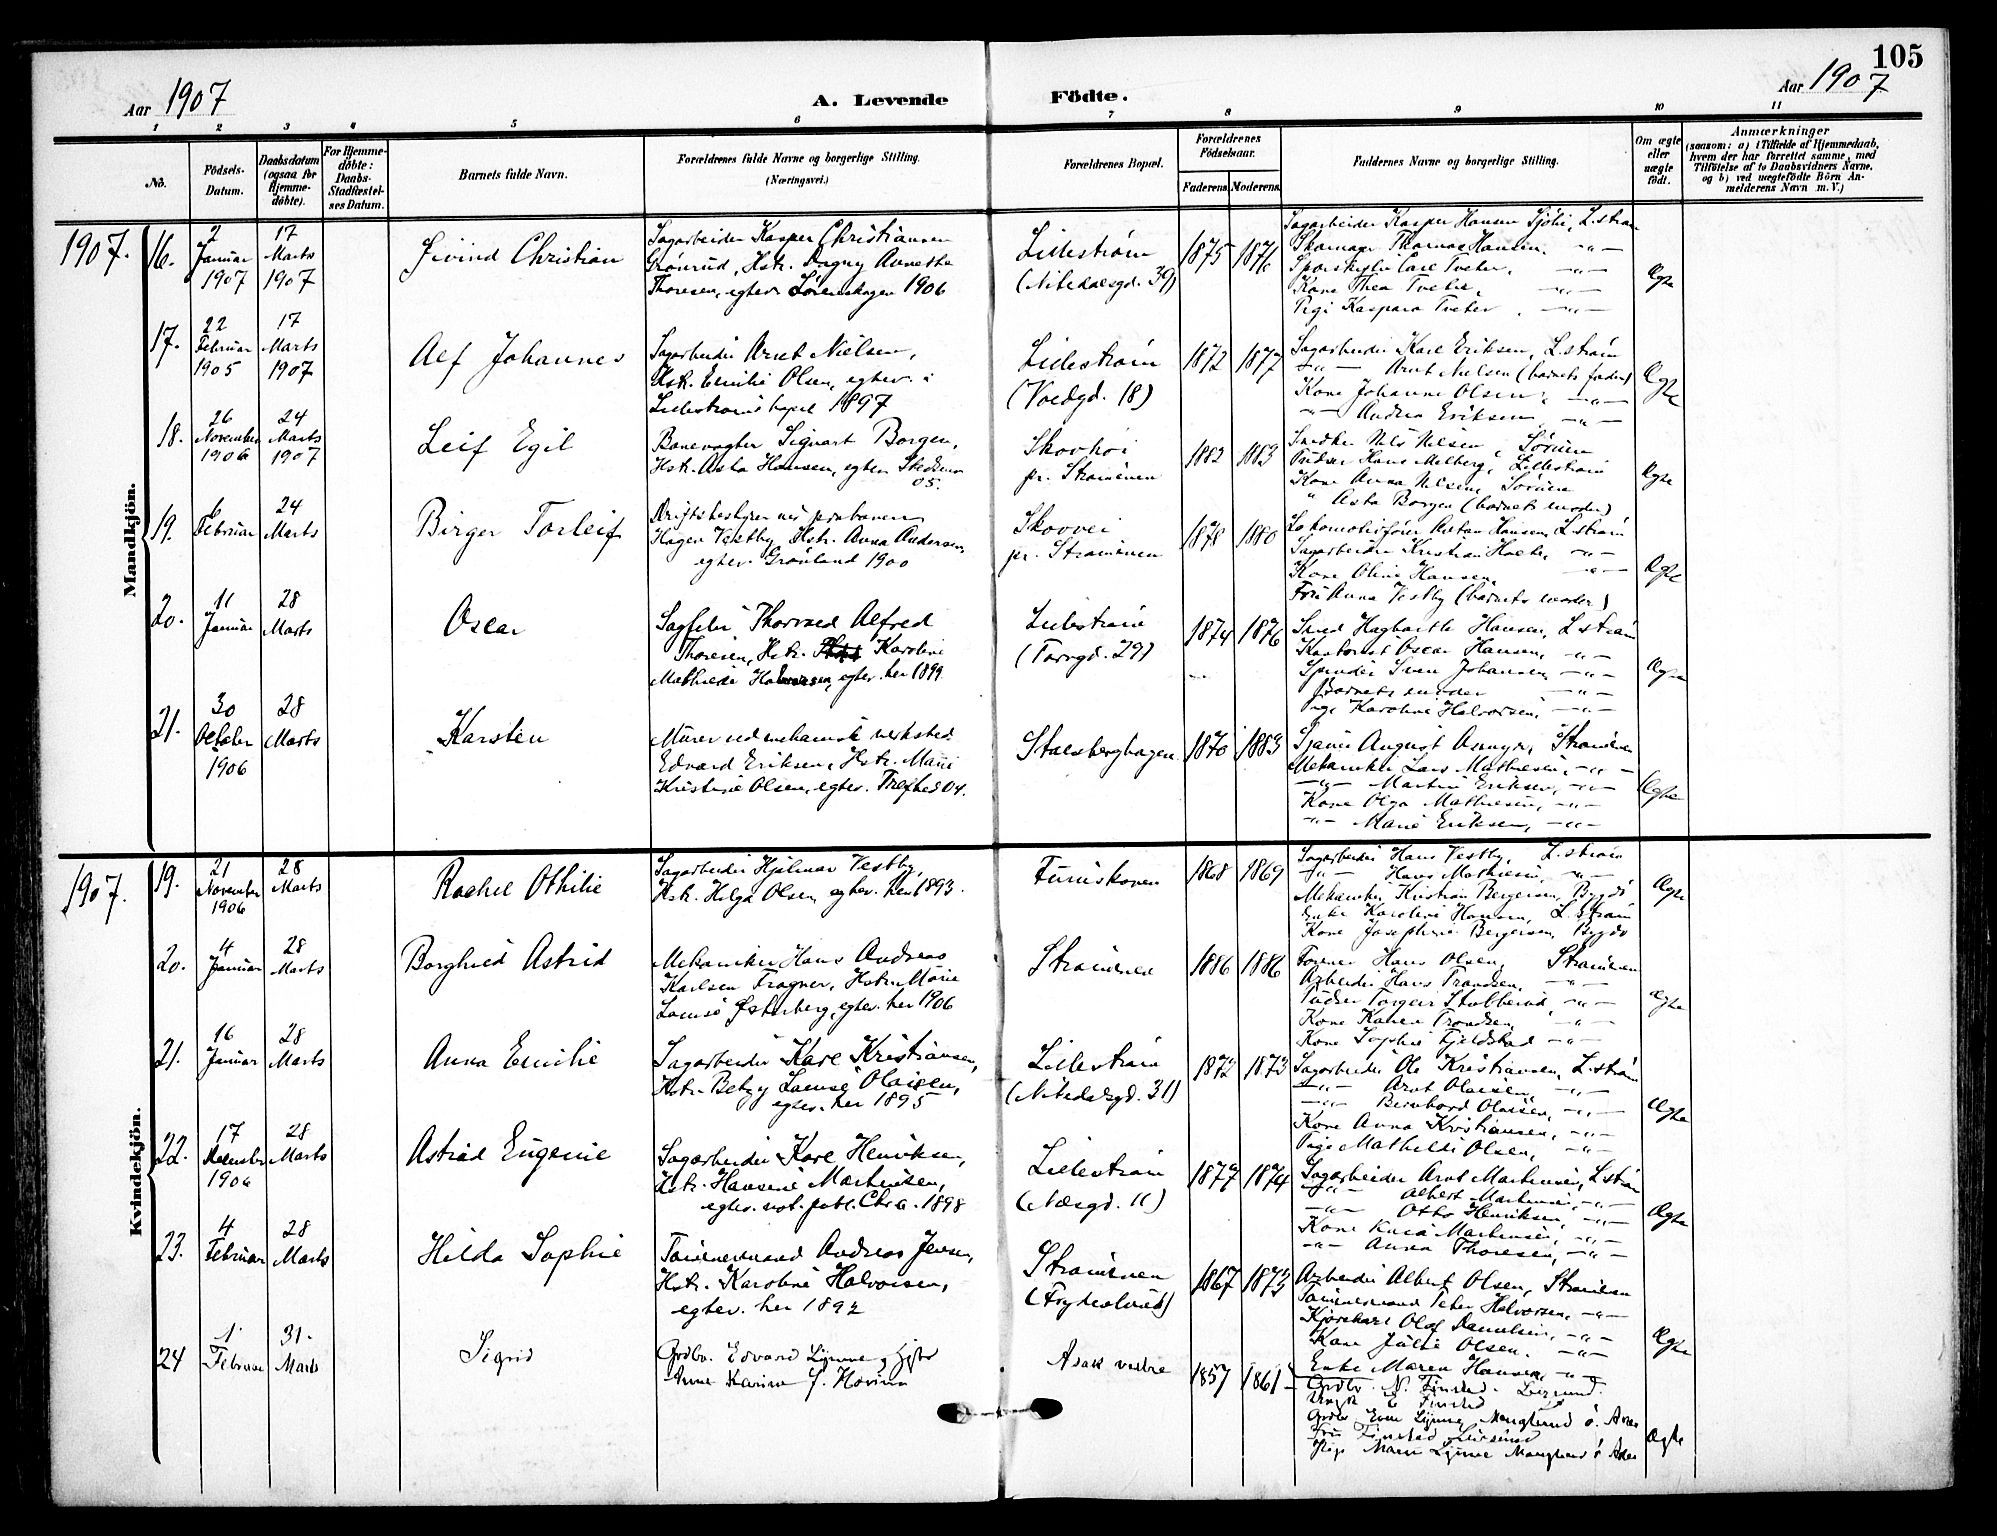 105
Aar 1907
A. Levende Födte.
Aar 1907
1 2 3 4 5 6 7 8 9 10 11
No.
Födsels-
Datum.
Daabsdatum
(ogsaa for
Hjemme-
döbte).
For Hjemme-
döbte:
Daabs-
Stadfæstel-
ses Datum.
Barnets fulde Navn.
Forældrenes fulde Navne og borgerlige Stilling.
(Næringsvei.)
Forældrenes Bopæl.
Forældrenes
Födselsaar.
Faderens. Moderens.
Faddernes Navne og borgerlige Stilling.
Om ægte
eller
uægte
födt.
Anmærkninger
(saasom: a) i Tilfælde af Hjemmedaab,
hvem der har forrettet samme, med
Tilföielse af to Daabsvidners Navne,
og b) ved uægtefödte Börn An-
melderens Navn m. V.)
Mandkjön.
1907.
16.
2
Januar
1907
17
Marts
1907
Eivind Christian
Sagarbeider Kasper Christiansen
Grönrud, Hstr. Dagny Annette
Thoresen, egtev. Lörenskogen 1906
Lilleström
(Nitedalsgd. 39)
1875 1876
Sagarbeider Kasper Hansen Sjöli, L.ström
Thomas Hansen, -"-
Carl Tveter, -"-
Kone Thea Tveter, -"-
Pige Kaspara Tveter, -"-
Ægte
17.
22
Februar
1905
17
Marts
1907
Alf Johannes
Sagarbeider Arnt Nielsen,
Hstr. Emilie Olsen, egtev. i
Lilleströms kapel 1897
Lilleström
(Voldgd. 18)
1872 1877
Sagarbeider Karl Eriksen, L.ström
-"- Arnt Nielsen (barnets fader)
Kone Johanne Olsen, -"-
-"- Andrea Eriksen, -"-
Ægte
18.
26
November
1906
24
Marts
1907
Leif Egil
Banevogter Sigvart Borgen,
Hstr. Asta Hansen, egtev. Skedsmo
05.
Skovhöi
pr. Strömmen
1882 1883
Snedker Nils Nilsen, Sörum
Pudser Hans Melberg, Lilleström
Kone Anna Nilsen, Sörum
" Asta Borgen (barnets moder)
Ægte
19.
6
Februar
24
Marts
Birger Torleif
Driftsbestyrer
Hagen Vestby, Hstr. Anna Andersen,
egtev. Grönland 1900
Skovvei
pr. Strömmen
1878 1880
Lokomotivförer Anton Hansen, L.ström
Sagarbeider Kristian Holter, -"-
Kone Oline Hansen, -"-
Fru Anna Vestby (barnets moder)
Ægte
20.
11
Januar
28
Marts
Oscar
Sagfiler Thorvald Alfred
Thoresen, Hstr. Karoline
Mathilde Halvorsen, egtev. her 1899
Lilleström
(Torvgd. 29)
1874 1876
Smed Hagbarth Hansen, L.ström
Kontorist Oscar Hansen, -"-
Sven Johansen, -"-
Barnets moder -"-
Pige Karoline Halvorsen, -"-
Ægte
21.
30
October
1906
28
Marts
Karsten
Murer ved mekanisk verksted
Edvard Eriksen, Hstr. Marie
Kristine Olsen, egtev. Trefhed 04.
Stalsberghagen
1870 1883
August Asmyr, Strömmen
Mekaniker Lars Mathiesen, -"-
-"- Martin Eriksen, -"-
Kone Olga Mathiesen, -"-
-"- Marie Eriksen, -"-
Ægte
Kvindekjön.
1907.
19.
21
November
1906
28
Marts
Rachel Othilie
Sagarbeider Hjalmar Vestby,
Hstr. Helga Olsen, egtev. her 1893.
Furuskoven
1868 1869
Sagarbeider Hans Vestby, L.ström
-"- Hans Mathiesen, -"-
Mekaniker Kristian Bergersen, Bygdö
Enke Karoline Hansen, L.ström
Kone Josephine Bergersen, Bygdö
Ægte
20.
4
Januar
28
Marts
Borghild Astrid
Mekaniker Hans Andreas
Karlsen Fragner, Hstr. Marie
Lovise Østerberg, egtev. her 1906
Strömmen
1886 1886
Former Hans Olsen, Strömmen
Arbeider Hans Trondsen, -"-
Pudser Torgeir Stubberud, -"-
Kone Karen Trondsen, -"-
Kone Sophie Fjeldstad -"-
Ægte
21.
16
Januar
28
Marts
Anna Emilie
Sagarbeider Karl Kristiansen,
Hstr. Betzy Lovise Olaisen,
egtev. her 1895
Lilleström
(Nitedalsgd. 31)
1872 1873
Sagarbeider Ole Kristiansen, L.ström
-"- Arnt Olaisen, -"-
-"- Bernhard Olaisen, -"-
Kone Anna Kristiansen, -"-
Pige Mathilde Olsen, -"-
Ægte
22.
17
December
1906
28
Marts
Astrid Eugenie
Sagarbeider Karl Henriksen,
Hstr. Hansine Martinsen,
egtev. not. publ. Chra. 1898
Lilleström
(Næsgd. 11)
1877 1874
Sagarbeider Arnt Martinsen, L.ström
-"- Albert Martinsen, -"-
-"- Otto Henriksen, -"-
Kone Martinsen, -"-
-"- Anna Thoresen, -"-
Ægte
23.
4
Februar
28
Marts
Hilda Sophie
Tömmermand Andreas Jensen,
Hstr. Karoline Halvorsen,
egtev. her 1892
Strömmen
(Frydenlund)
1867 1873
Arbeider Albert Olsen, Strömmen
Tömmermand Peter Halvorsen, -"-
Kjörekarl Olaf Danielsen, -"-
Kone Julie Olsen, -"-
Enke Maren Hansen, -"-
Ægte
24
1
Februar
31.
Marts
Sigrid
Grdbr. Edvard Lynne, Hstr
Anne Karine f. Hovin
Asak vestre
1857 1861
Grdbr. N. Finstad.
E Finstad
Grdbr Even Lynne, Manglerud ö. Aker
Fru Finstad
Pige Maren Lynne Manglerud ö Aker
Ægte